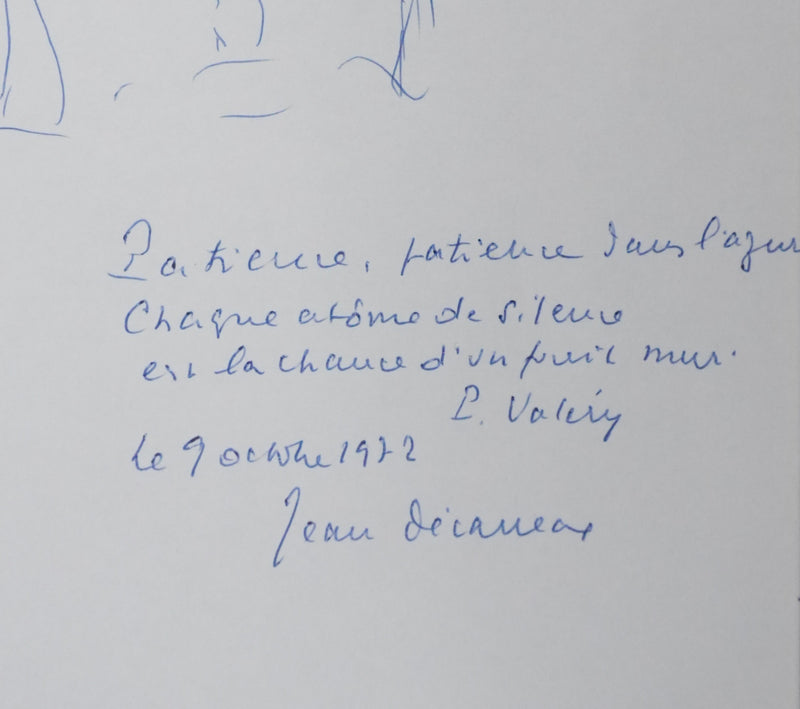 Patience, patience dans l'azur
Chaque atôme de silence
est la chance d'un fruit mur.
P. Valéry
le 9 octobre 1972
Jean